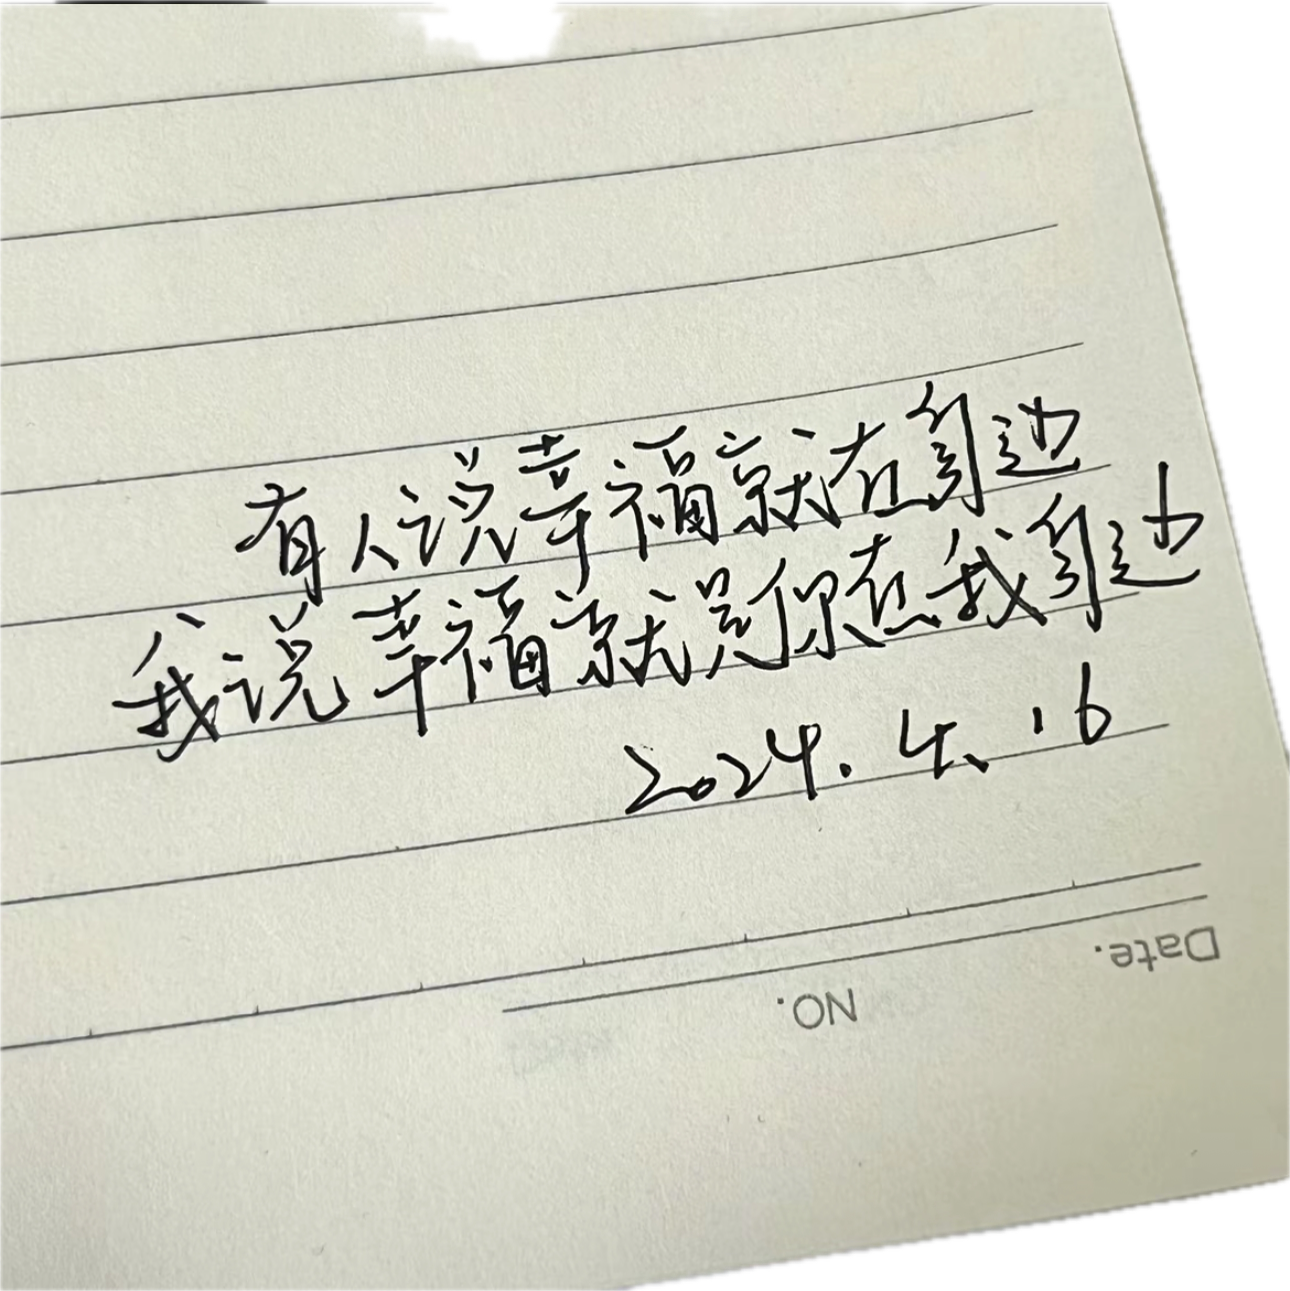 有人说幸福就在身边
我说幸福就是你在我身边
2024.4.16
Date.
NO.